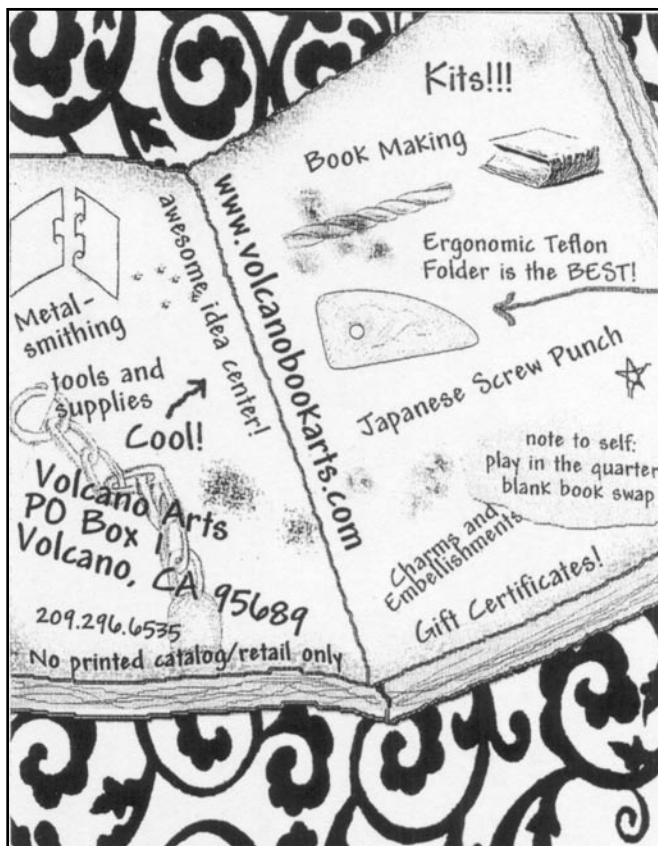 Metal-
smithing
tools and
supplies
Cool!
awesome idea center!
Volcano Arts
PO Box 1
Volcano, CA 95689
209.296.6535
No printed catalog/retail only
www.volcanobookarts.com
Kits!!!
Book Making
Ergonomic Teflon
Folder is the BEST!
Japanese Screw Punch
note to self:
play in the quarter
blank book swap
Charms and
Embellishments
Gift Certificates!